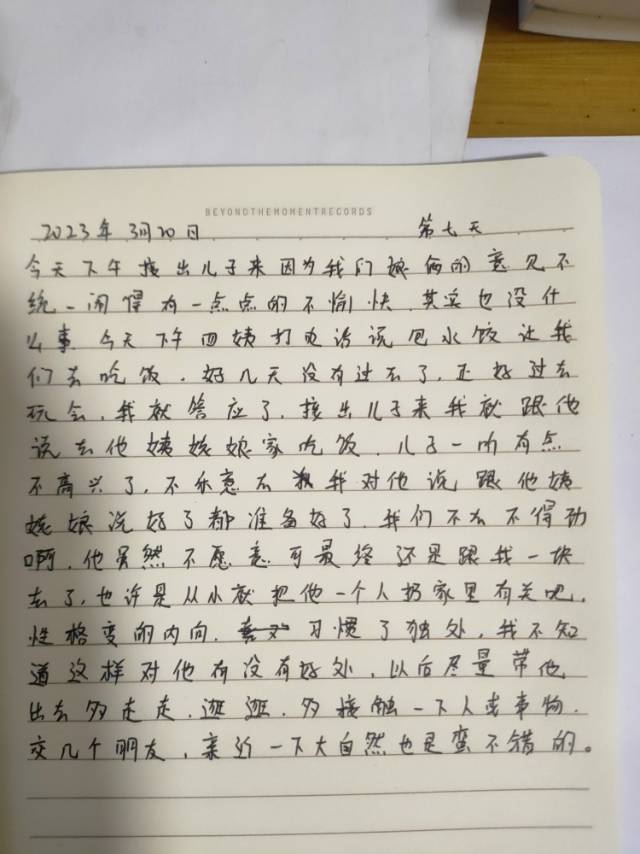 BEYONDTHEMOMENTRECORDS
2023年3月20日 第七天
今天下午接出儿子来因为我们娘俩的意见不
统一闹得有一点点的不愉快.其实也没什
么事.今天下午四姨打电话说包水饺让我
们去吃饭.好几天没有过去了,正好过去
玩会,我就答应了,接出儿子来我就跟他
说去他姨姥娘家吃饭.儿子一听有点
不高兴了,不乐意去 我对他说跟他姨
姥娘说好了都准备好了.我们不去不得劲
啊.他虽然不愿意可最终还是跟我一块
去了,也许是从小就把他一个人扔家里有关吧,
性格变的内向. 习惯了独处,我不知
道这样对他有没有好处,以后尽量带他
出去多走走,逛逛,多接触一下人或事物.
交几个朋友,亲近一下大自然也是蛮不错的。